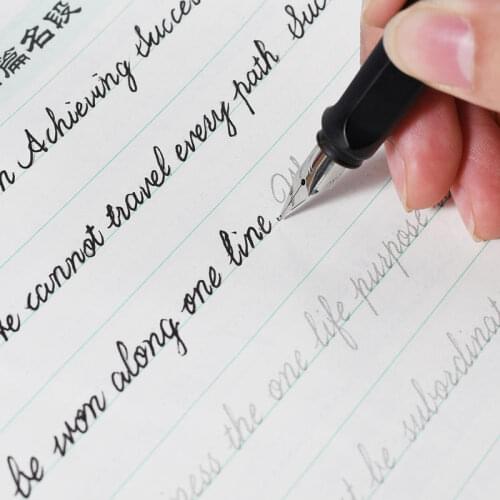 篇名段
n Achieving Succes
e cannot travel every path Suc
be won along one line.
ness the one life purpose
t be subordinat